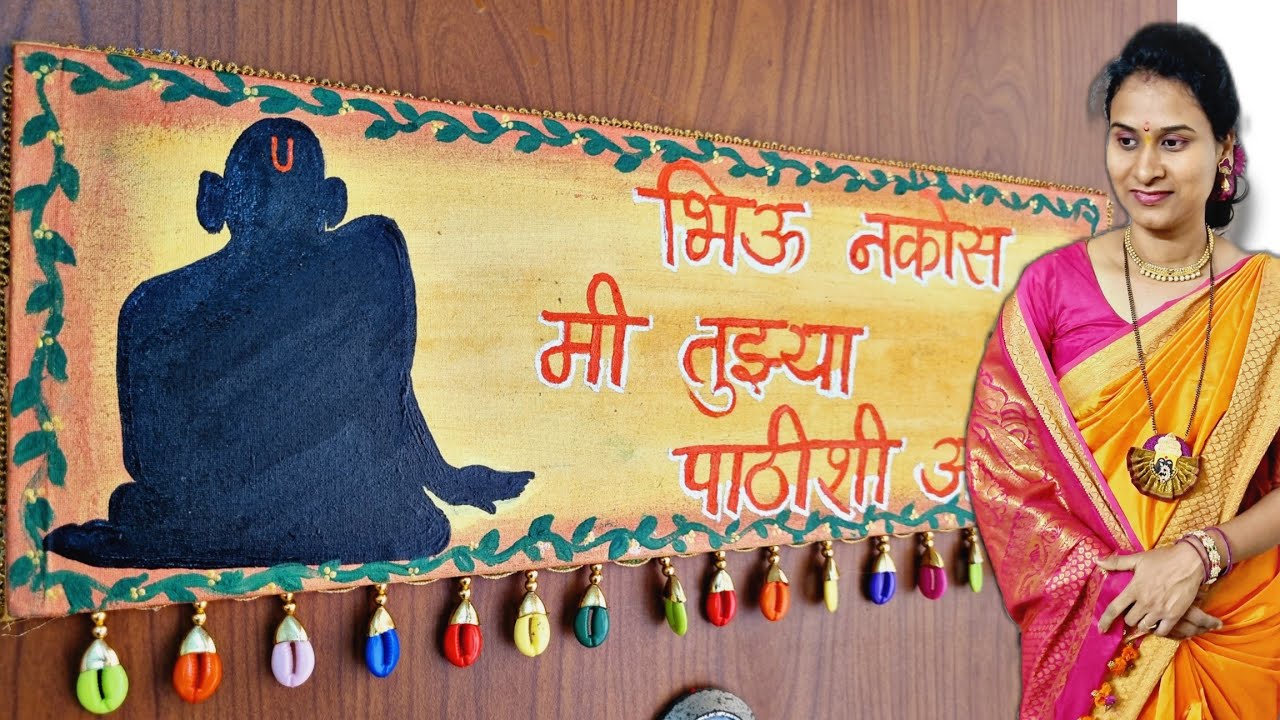 भिऊ नकोस
मी तुझ्या
पाठीशी